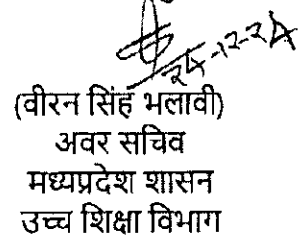 24-12-24
(वीरन सिंह भलावी)
अवर सचिव
मध्यप्रदेश शासन
उच्च शिक्षा विभाग